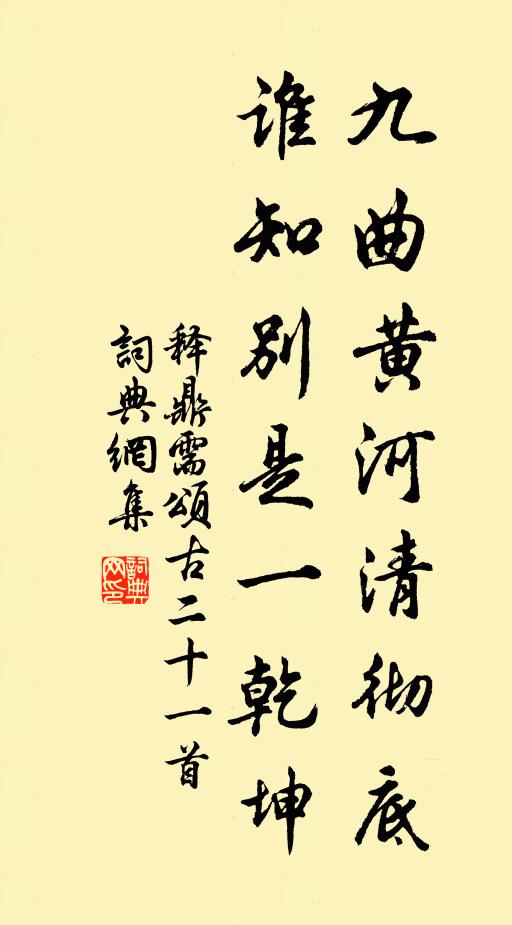 九曲黄河清彻底
谁知别是一乾坤
释鼎需颂古二十一首
詞典網集
詞典网印